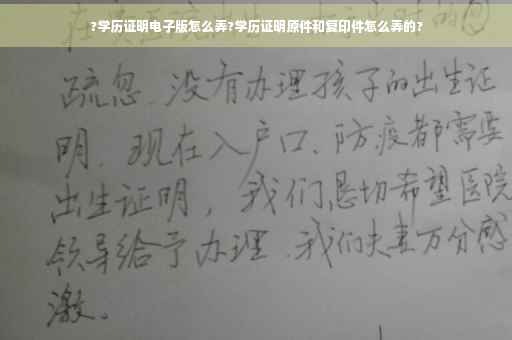 ?学历证明电子版怎么弄?学历证明原件和复印件怎么弄的?
疏忽、没有办理孩子的出生证
明、现在入户口、防疫都需要
出生证明，我们恳切希望医院
领导给予办理、我们夫妻万分感
激。